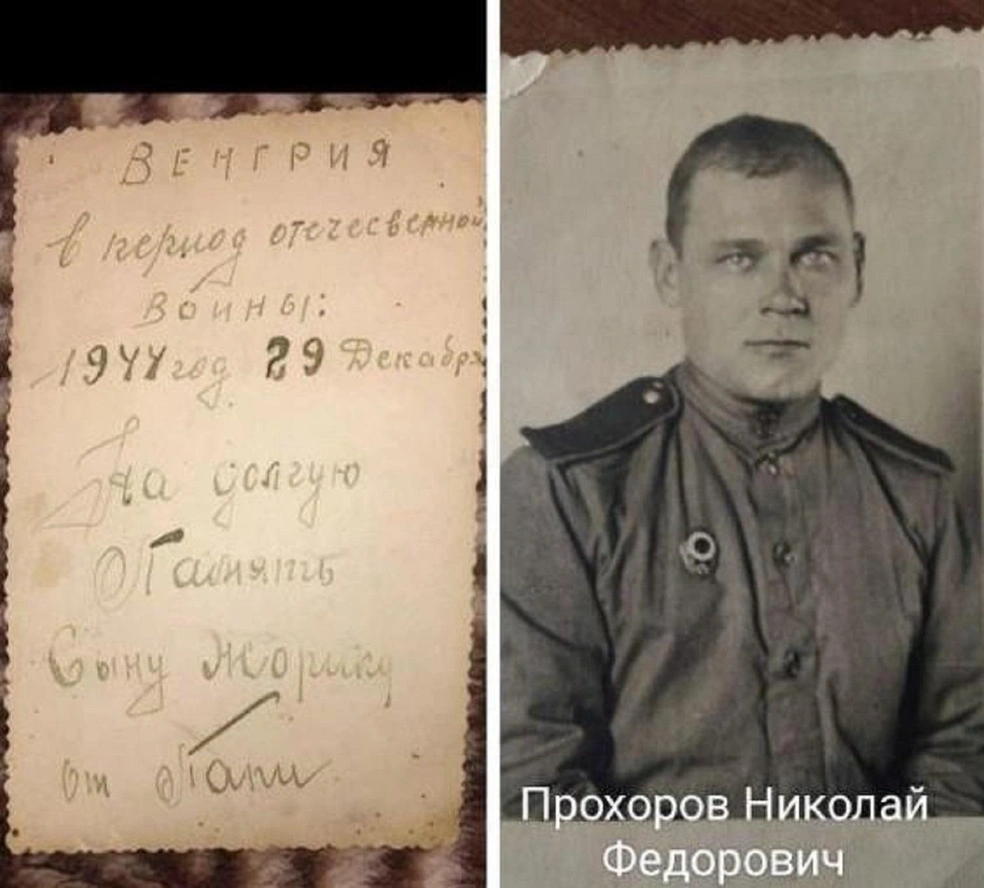 ВЕНГРИЯ
в период отечесвенной
войны:
1944 год 29 Декабря
На долгую
Память
Сыну Жорику
от Папи
Прохоров Николай
Федорович